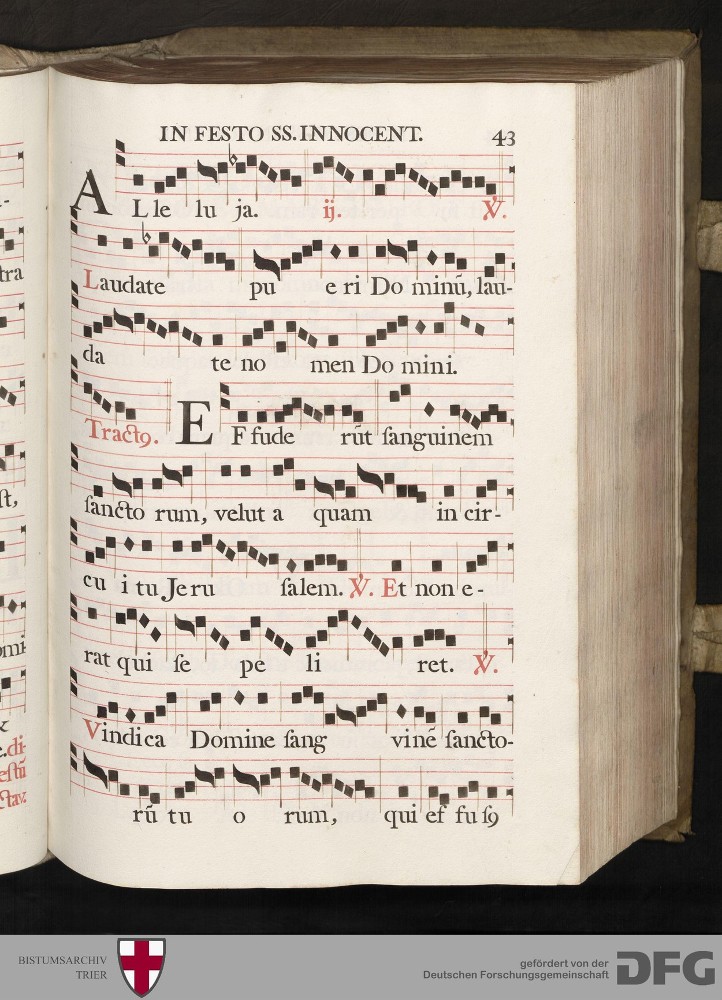 IN FESTO SS. INNOCENT. 43
A L le lu ja. ij. ℣.
Laudate pu e ri Do minū, lau-
da te no men Do mini.
Tractꝯ. E F fude rūt ſanguinem
ſancto rum, velut a quam in cir-
cu i tu Je ru ſalem. ℣. Et non e-
rat qui ſe pe li ret. ℣.
Vindica Domine ſang vinē ſancto-
rū tu o rum, qui eſ fu ſꝯ
tra
ſt,
omi
&
e. di-
eſtū
ctav.
BISTUMSARCHIV
TRIER
gefördert von der
Deutschen Forschungsgemeinschaft
DFG